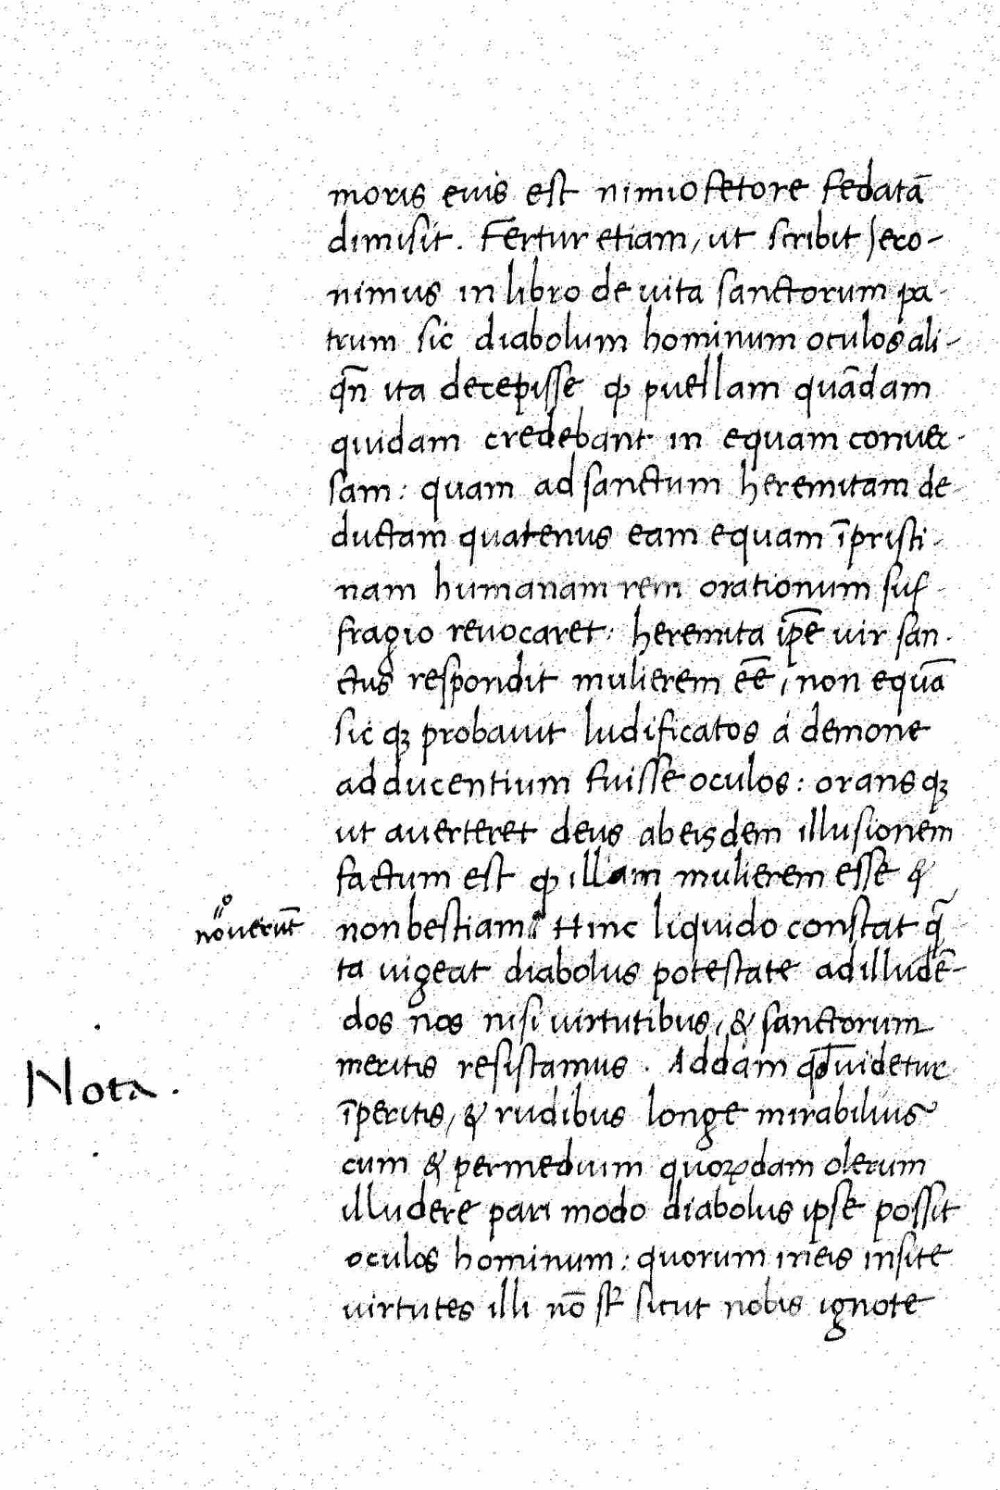 moris euis est nimio fetore fedatā
dimisit. Fertur etiam, ut scribit Jero-
nimus in libro de uita sanctorum pa-
trum sic diabolum hominum oculos ali-
qn̄ ita decepisse ꝙ puellam quādam
quidam credebant in equam conuer-
sam: quam ad sanctum heremitam de-
ductam quatenus eam equam īpristi-
nam humanam rem orationum suf-
fragio reuocaret: heremita ip̄e uir san-
ctus respondit mulierem eē, non equā
sic qꝫ probauit ludificatos á demone
adducentium fuisse oculos: oransqꝫ
ut auerteret deus ab eisdem illusionem
factum est ꝙ illam mulierem esse &
nouerūt
non bestiam Hinc liquido constat q̄
ta uigeat diabolus potestate ad illudē-
dos nos nisi uirtutibus, & sanctorum
Nota.
meritis resistamus. Addam qđ uidetur
īperitis, & rudibus longe mirabilius
cum & per medium quoꝝdam olerum
illudere pari modo diabolus ipse possit
oculos hominum: quorum in eis insite
uirtutes illi nō st̄ sicut nobis ignote